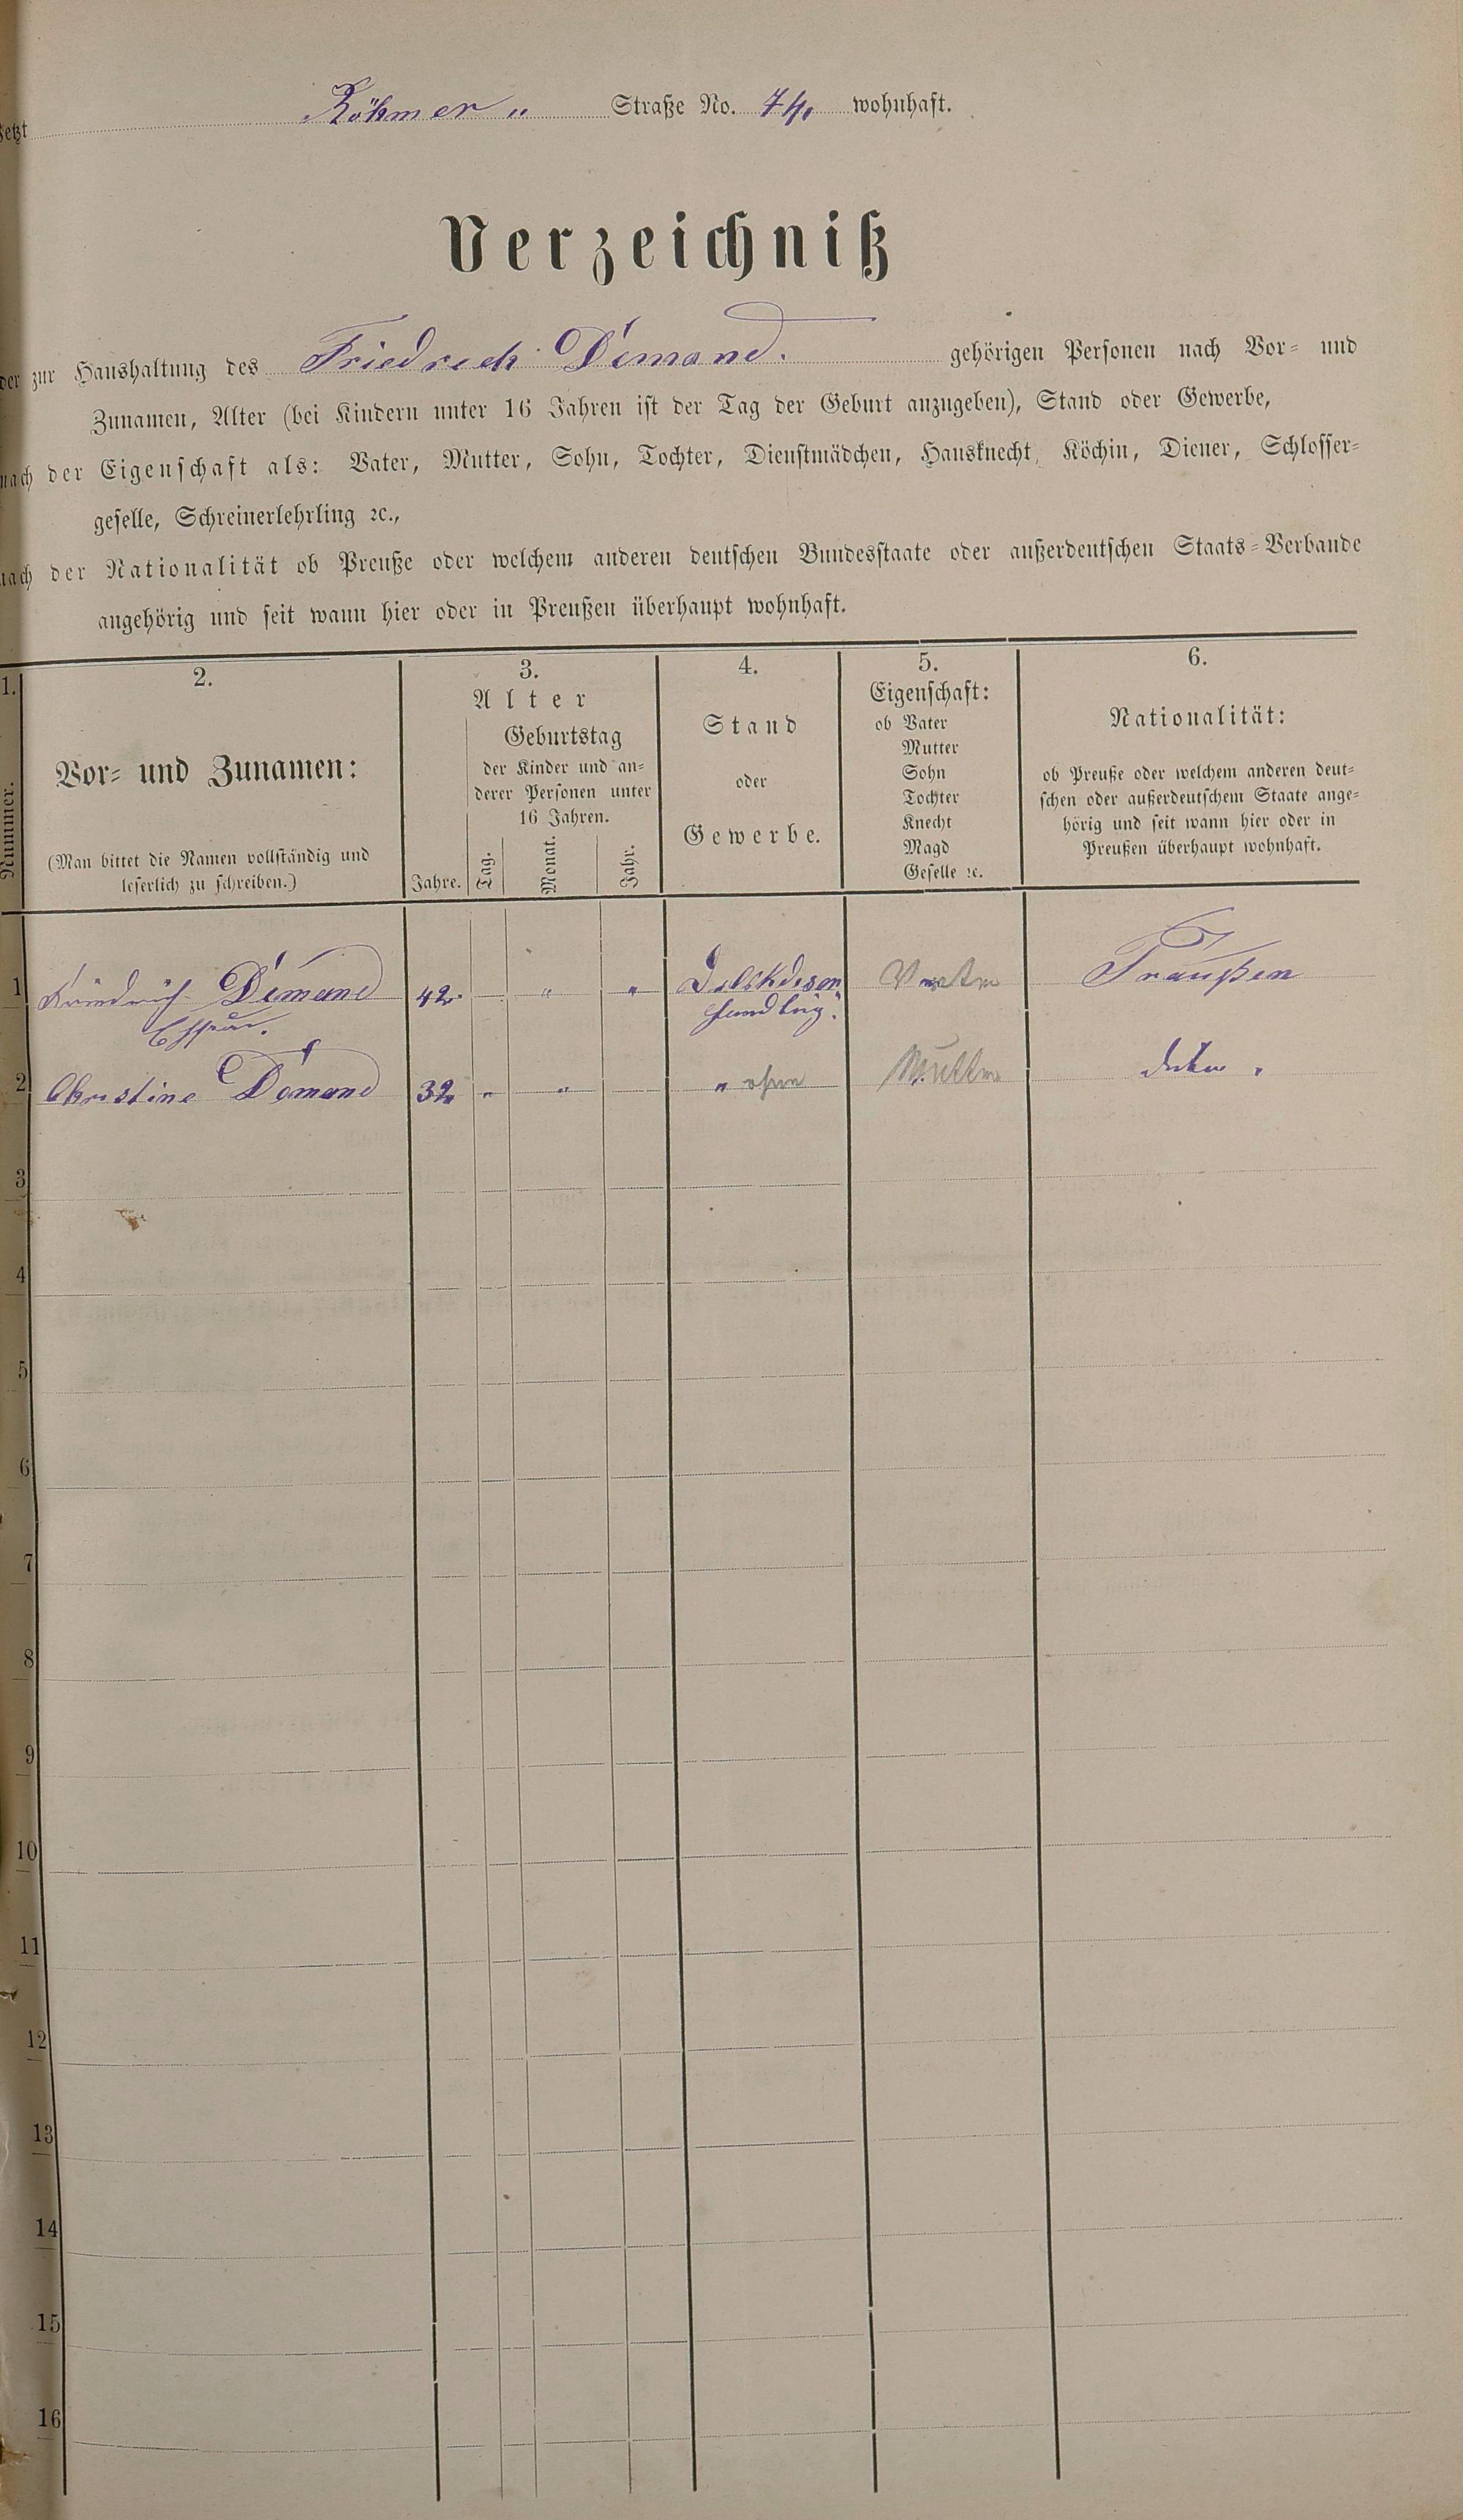 Jetzt Röhmer „ Straße No. 74. wohnhaft.
Verzeichniß
der zur Haushaltung des Friedrich Demand. gehörigen Personen nach Vor- und
Zunamen, Alter (bei Kindern unter 16 Jahren ist der Tag der Geburt anzugeben), Stand oder Gewerbe,
nach der Eigenschaft als: Vater, Mutter, Sohn, Tochter, Dienstmädchen, Hausknecht, Köchin, Diener, Schlosser-
geselle, Schreinerlehrling ꝛc.,
nach der Nationalität ob Preuße oder welchem anderen deutschen Bundesstaate oder außerdeutschen Staats-Verbande
angehörig und seit wann hier oder in Preußen überhaupt wohnhaft.
1.
Nummer.
2.
Vor- und Zunamen:
(Man bittet die Namen vollständig und
leserlich zu schreiben.)
3.
Alter
Jahre.
Geburtstag
der Kinder und an-
derer Personen unter
16 Jahren.
Tag.
Monat.
Jahr.
4.
Stand
oder
Gewerbe.
5.
Eigenschaft:
ob Vater
Mutter
Sohn
Tochter
Knecht
Magd
Geselle ꝛc.
6.
Nationalität:
ob Preuße oder welchem anderen deut-
schen oder außerdeutschem Staate ange-
hörig und seit wann hier oder in
Preußen überhaupt wohnhaft.
1 Friedrich Demand 42. „ „ Vater Preußen
Handlung.
Ehefrau.
2 Christine Demand 32. „ „ „ ohne Mutter
3
4
5
6
7
8
9
10
11
12
13
14
15
16